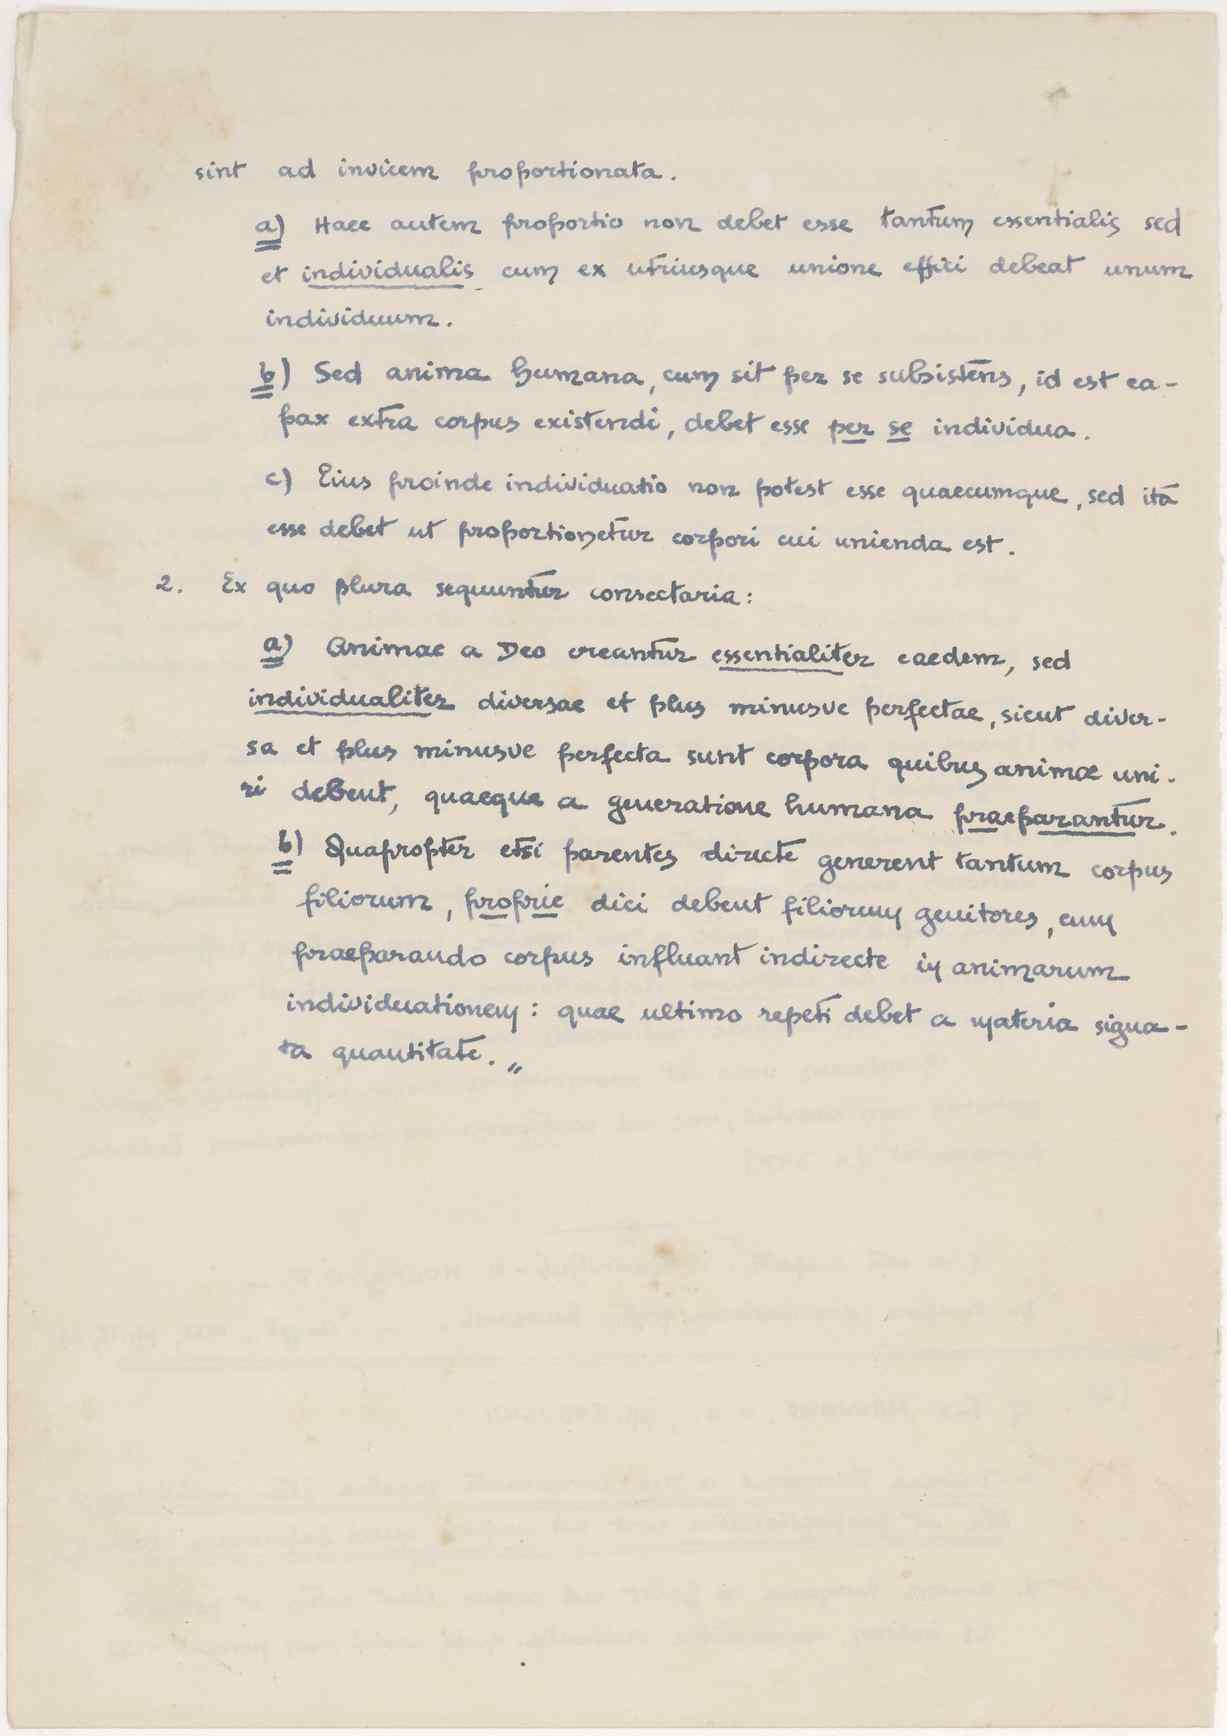 sint ad invicem proportionata.
a) Haec autem proportio non debet esse tantum essentialis sed
et individualis cum ex utriusque unione effici debeat unum
individuum.
b) Sed anima humana, cum sit per se subsistens, id est ca-
pax extra corpus existendi, debet esse per se individua.
c) Eius proinde individuatio non potest esse quaecumque, sed ita
esse debet ut proportionetur corpori cui unienda est.
2. Ex quo plura sequuntur consectaria:
a) Animae a Deo creantur essentialiter eaedem, sed
individualiter diversae et plus minusve perfectae, sicut diver-
sa et plus minusve perfecta sunt corpora quibus animae uni-
ri debent, quaeque a generatione humana praeparantur.
b) Quapropter etsi parentes directe generent tantum corpus
filiorum, proprie dici debent filiorum genitores, cum
praeparando corpus influant indirecte in animarum
individuationem: quae ultimo repeti debet a materia signa-
ta quantitate.„